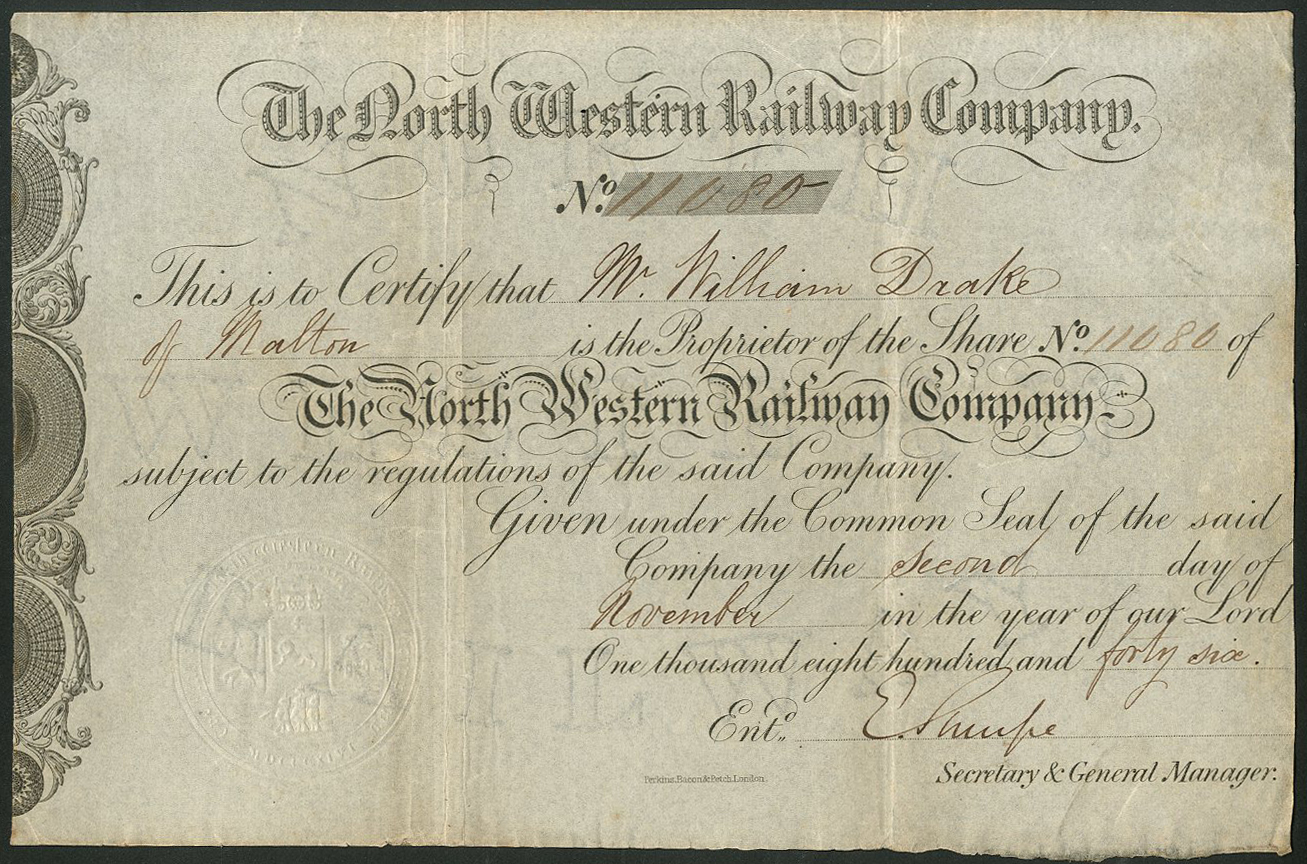 The North Western Railway Company.
No. 11080
This is to Certify that Mr. William Drake
of Malton is the Proprietor of the Share No. 11080 of
The North Western Railway Company
subject to the regulations of the said Company.
Given under the Common Seal of the said
Company the Second day of
November in the year of our Lord
One thousand eight hundred and forty six.
Entd. E. Sharpe
Perkins, Bacon & Petch, London.
Secretary & General Manager.